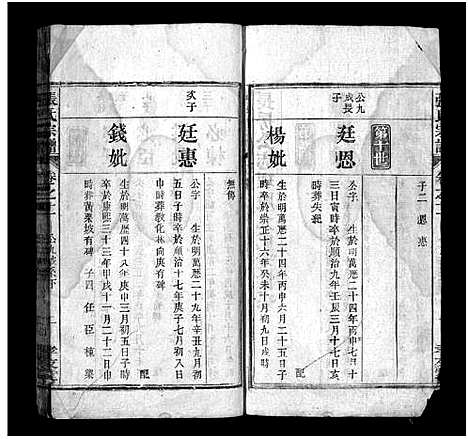 張氏宗譜 卷之十
子二 恩 惠
公九成長子
廷恩
公字 生於明萬歷二十四年丙申七月三十日
三日寅時卒於順治九年壬辰三月十七日亥
時葬失考 配
楊妣
生於明萬歷二十四年丙申六月二十五日
時卒於崇正十六年癸未十月初九日戌時
無傳
次子
廷惠
公字 生於明萬歷二十九年辛丑九月初
五日子時卒於順治十七年庚子七月初八日
時葬教化林向庚有碑 配
錢妣
生於明萬歷四十八年庚申三月初五日子
時卒於康熙三十三年甲戌十一月二十二日申
時葬黃栗坡有碑 子四 任 臣 棟 梁
張氏宗譜 卷之十